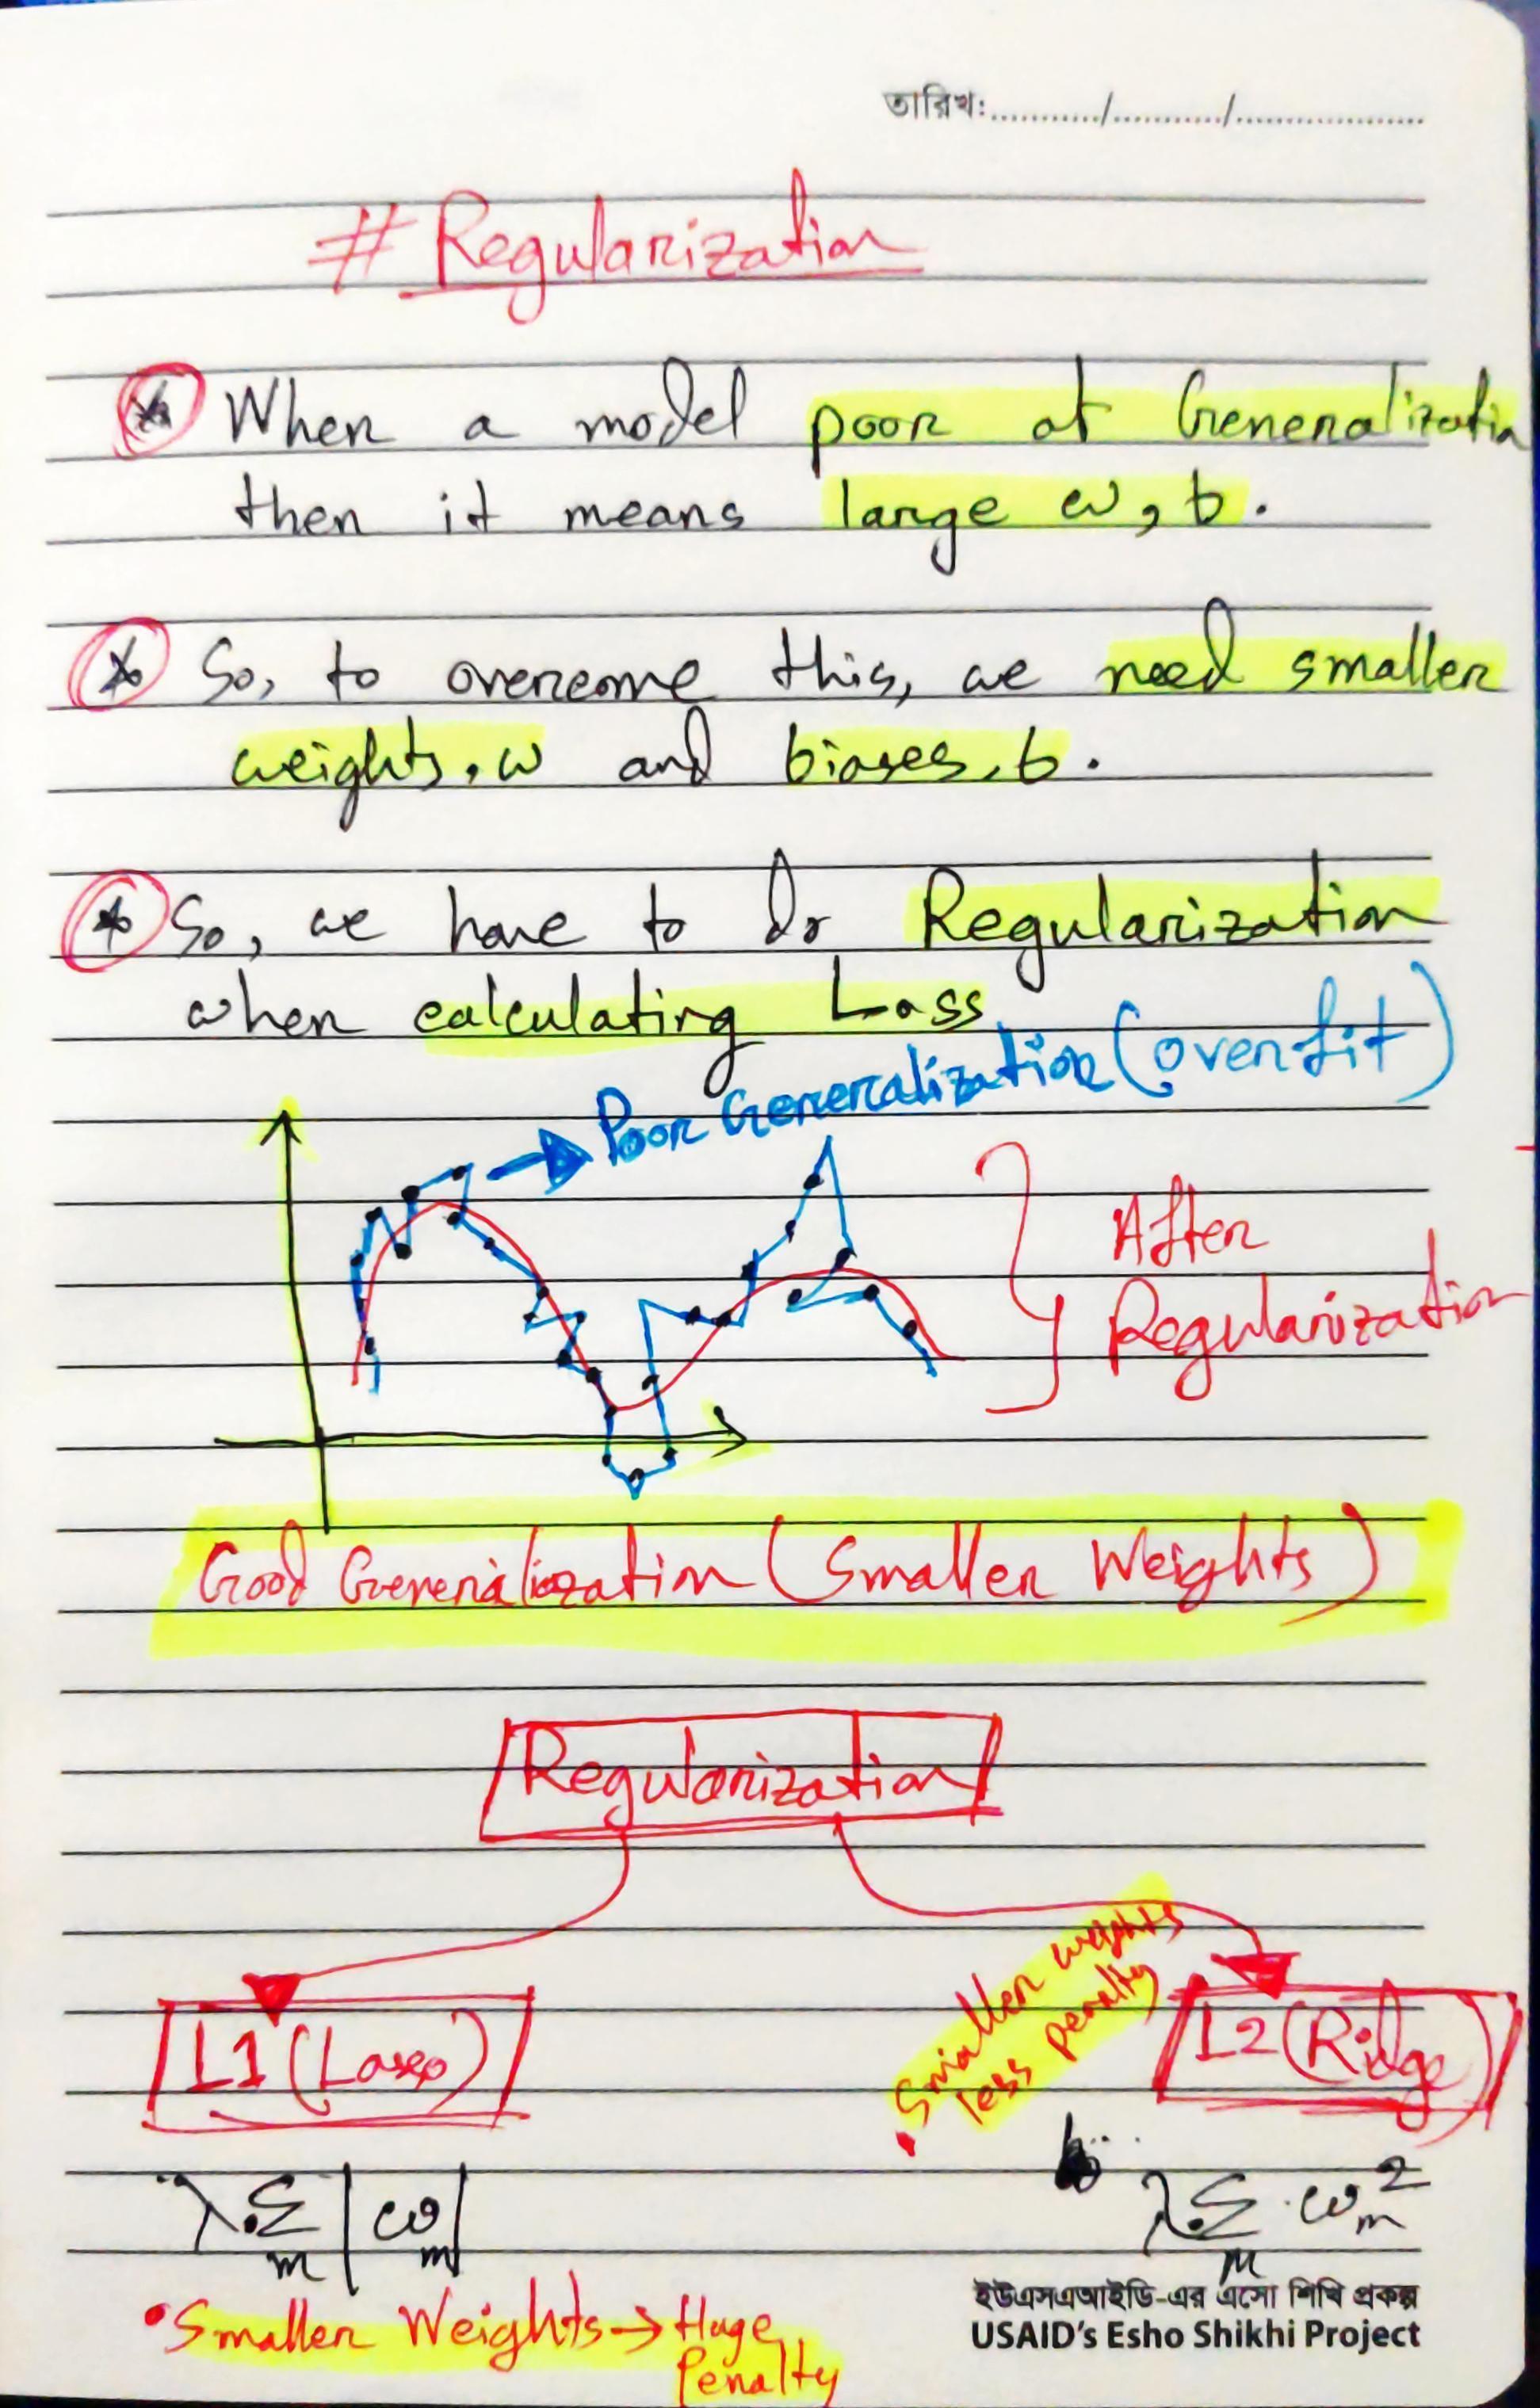 তারিখ:.........../.........../...................
# Regularization
When a model poor at Generalization
then it means large w, b.
So, to overcome this, we need smaller
weights, w and biases, b.
So, we have to do Regularization
when calculating Loss
Poor Generalization (overfit)
After
Regularization
Good Generalization (Smaller Weights)
Regularization
L1 (Lasso)
Smaller weights
less penalty
L2 (Ridge)
λ.Σ |w|
m m
λ.Σ.w²
m m
• Smaller Weights → Huge
Penalty
ইউএসএআইডি-এর এসো শিখি প্রকল্প
USAID's Esho Shikhi Project